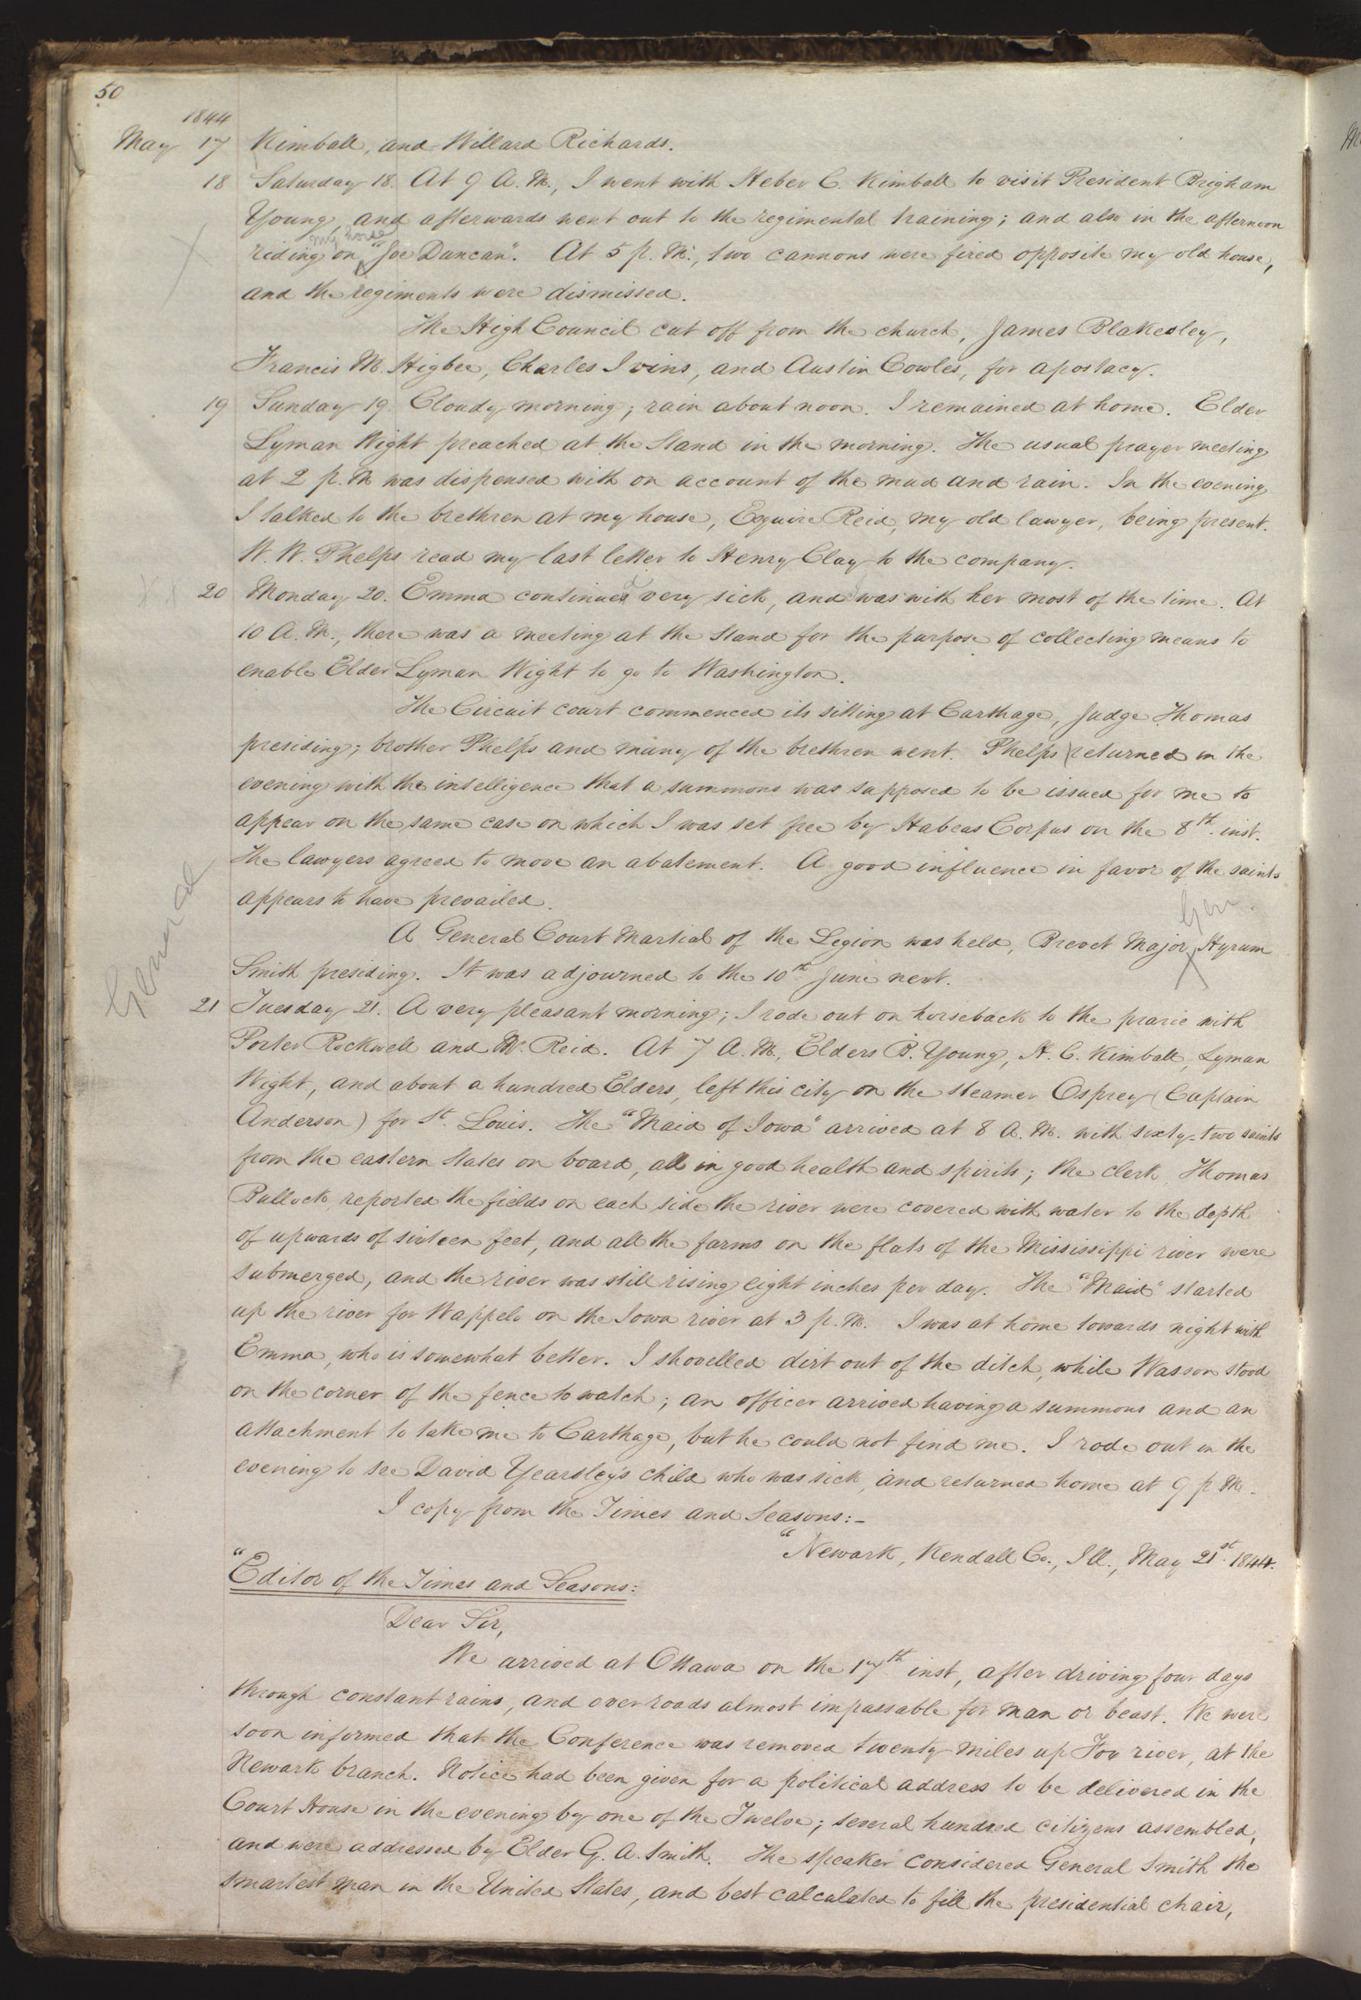 50
1844
May 17 Kimball, and Willard Richards.
18 Saturday 18. At 9 A.M., I went with Heber C. Kimball to visit President Brigham
Young, and afterwards went out to the regimental training; and also in the afternoon
my horse
riding on "Joe Duncan". At 5 p.M., two cannons were fired opposite my old house,
and the regiments were dismissed.
The High Council cut off from the church, James Blakesley,
Francis M. Higbee, Charles Ivins, and Austin Cowles, for apostacy.
19 Sunday 19. Cloudy morning; rain about noon. I remained at home. Elder
Lyman Wight preached at the Stand in the morning. The usual prayer meeting
at 2 p.M was dispensed with on account of the mud and rain. In the evening
I talked to the brethren at my house, Esquire Reid, my old lawyer, being present.
W. W. Phelps read my last letter to Henry Clay to the company.
20 Monday 20. Emma continued very sick, and was with her most of the time. At
10 A.M., there was a meeting at the stand for the purpose of collecting means to
enable Elder Lyman Wight to go to Washington.
The Circuit court commenced its sitting at Carthage, Judge Thomas
presiding; brother Phelps and many of the brethren went. Phelps returned in the
evening with the intelligence that a summons was supposed to be issued for me to
appear on the same case on which I was set free by Habeas Corpus on the 8th. inst.
The lawyers agreed to move an abatement. A good influence in favor of the saints
appears to have prevailed.
Gen.
A General Court Martial of the Legion was held, Brevet Major, Hyrum
Smith presiding. It was adjourned to the 10th June next.
General
21 Tuesday 21. A very pleasant morning; I rode out on horseback to the prarie with
Porter Rockwell and Mr. Reid. At 7 A.M., Elders B. Young, H. C. Kimball, Lyman
Wight, and about a hundred Elders, left this city on the steamer Osprey (Captain
Anderson) for St. Louis. The "Maid of Iowa" arrived at 8 A.M. with sixty-two saints
from the eastern States on board, all in good health and spirits; the clerk, Thomas
Bullock, reported the fields on each side the river were covered with water to the depth
of upwards of sixteen feet, and all the farms on the flats of the Mississippi river were
submerged, and the river was still rising eight inches per day. The "Maid" started
up the river for Wappelo on the Iowa river at 3 p.M. I was at home towards night with
Emma, who is somewhat better. I shovelled dirt out of the ditch, while Wasson stood
on the corner of the fence to watch; an officer arrived having a summons and an
attachment to take me to Carthage, but he could not find me. I rode out in the
evening to see David Yearsley's child who was sick, and returned home at 9 p.M.
I copy from the Times and Seasons:-
"Newark, Kendall Co., Ill., May 21st. 1844.
"Editor of the Times and Seasons:
Dear Sir,
We arrived at Ottawa on the 17th inst, after driving four days
through constant rains, and over roads almost impassable for man or beast. We were
soon informed that the Conference was removed twenty miles up Fox river, at the
Newark branch. Notice had been given for a political address to be delivered in the
Court House in the evening by one of the Twelve; several hundred citizens assembled,
and were addressed by Elder G. A. Smith. The speaker considered General Smith the
smartest man in the United States, and best calculated to fill the presidential chair,